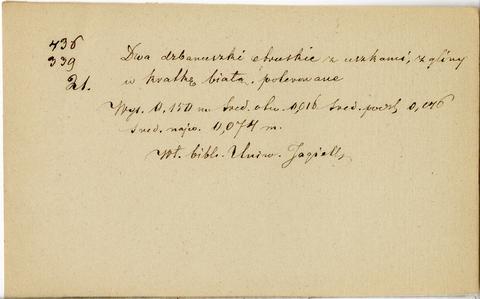 436
339
21.
Dwa dzbanuszki etruskie z uszkami, z gliny
w kratkę białą, polerowane
Wys. 0,150 m. Sred. otw. 0,016 Sred. podst. 0,046
Sred. najw. 0,074 m.
Wł. bibl. Uniw. Jagiell.